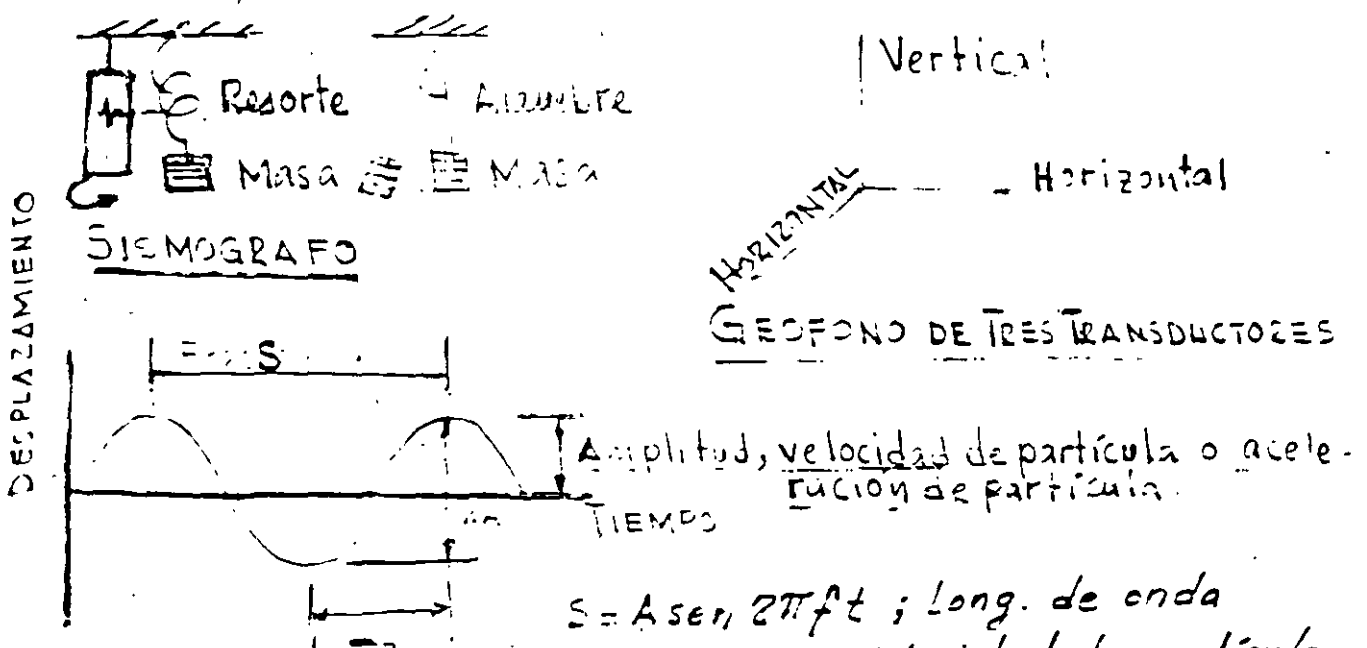 Vertical
Resorte
Alambre
Masa
Masa
Horizontal
HORIZONTAL
SISMOGRAFO
GEOFONO DE TRES TRANSDUCTORES
DESPLAZAMIENTO
S
Amplitud, velocidad de partícula o acele-
ración de partícula.
TIEMPO
S = A sen 2πft ; Long. de onda